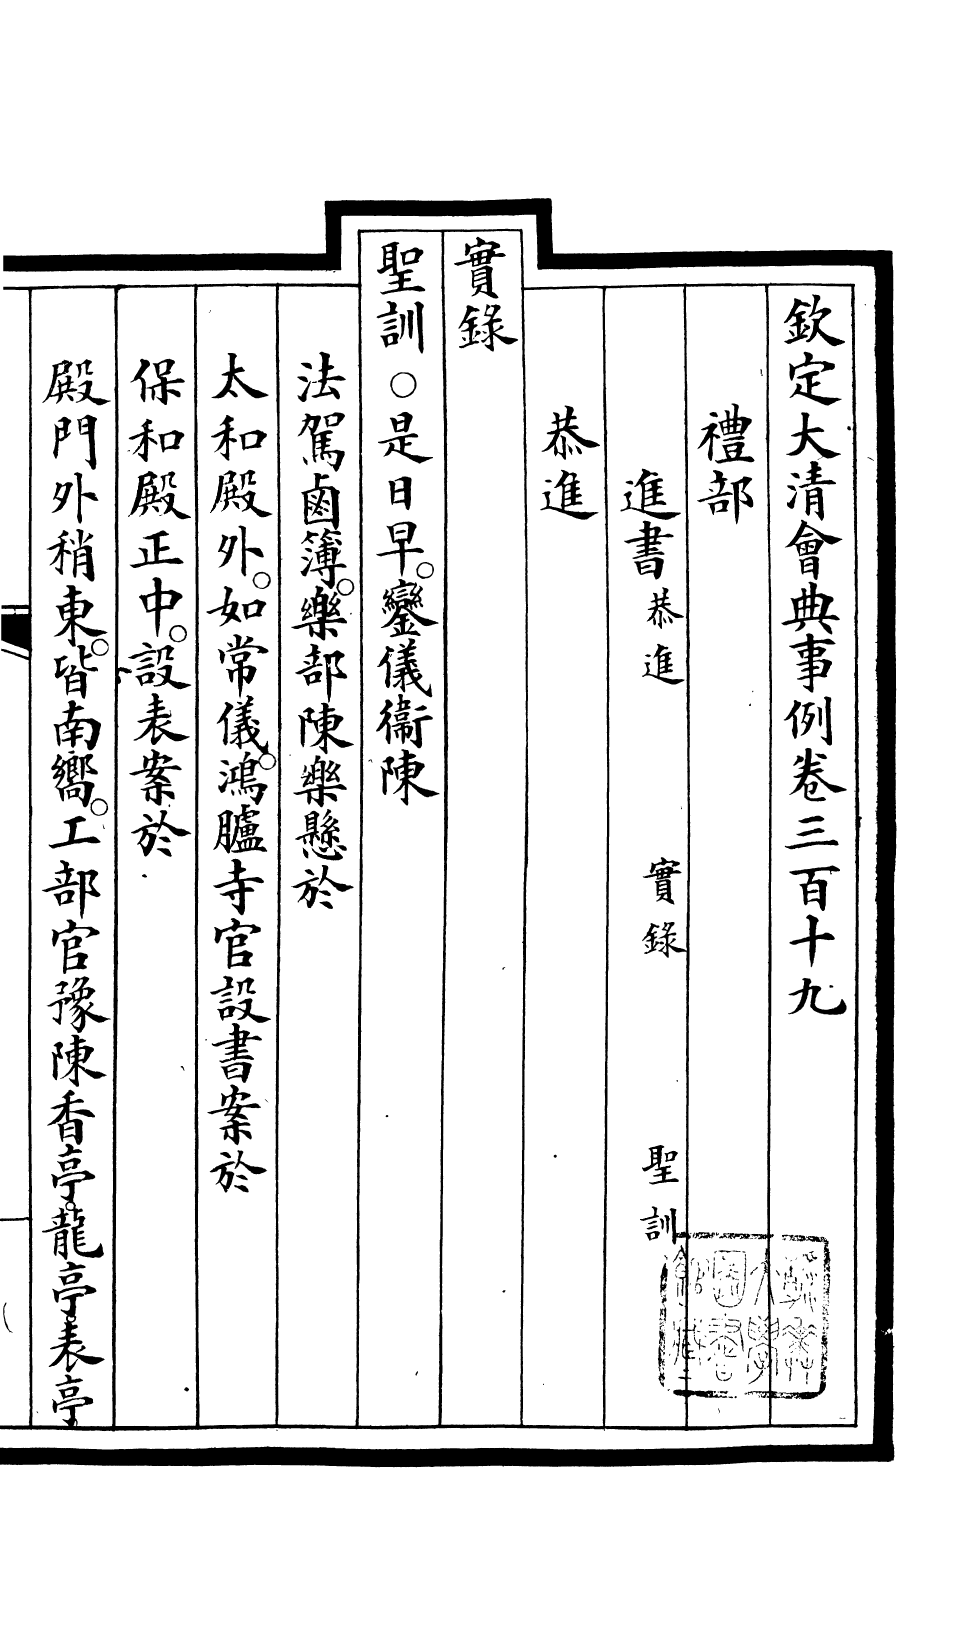 欽定大清會典事例卷三百十九
禮部
進書恭進 實錄 聖訓
恭進
實錄
聖訓○是日早。鑾儀衞陳
法駕鹵簿。樂部陳樂懸於
太和殿外。如常儀。鴻臚寺官設書案於
保和殿正中。設表案於
殿門外稍東。皆南嚮。工部官豫陳香亭。龍亭。表亭。